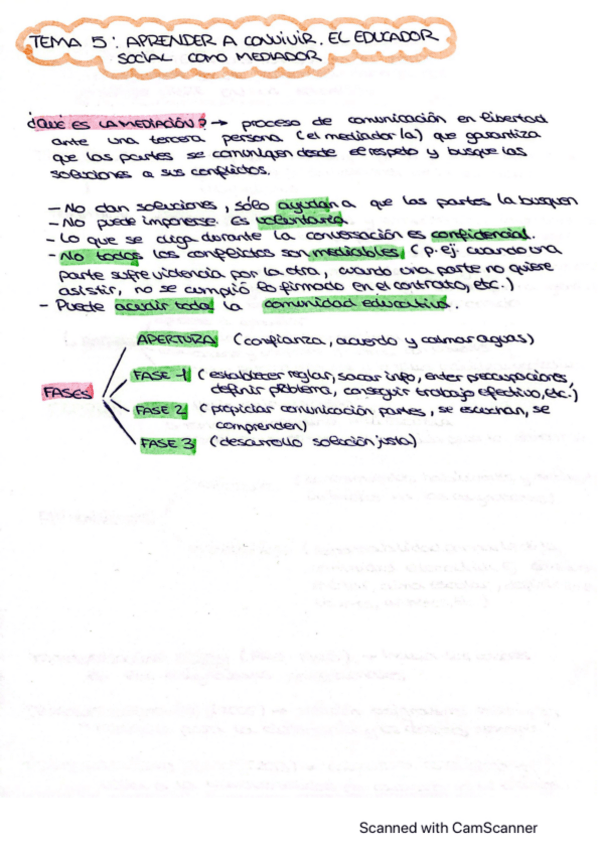 TEMA 5: APRENDER A CONVIVIR. EL EDUCADOR
SOCIAL COMO MEDIADOR
¿QUÉ ES LA MEDIACIÓN? → proceso de comunicación en libertad
ante una tercera persona (el mediador/a) que garantiza
que las partes se comuniquen desde el respeto y busque las
soluciones a sus conflictos.
- No dan soluciones, sólo ayudan a que las partes la busquen
- No puede imponerse. Es voluntaria.
- Lo que se diga durante la conversación es confidencial.
- No todos los conflictos son mediables (p. ej. cuando una
parte sufre violencia por la otra, cuando una parte no quiere
asistir, no se cumplió lo firmado en el contrato, etc.)
- Puede acudir toda la comunidad educativa.
APERTURA (confianza, acuerdo y calmar aguas)
FASES
FASE 1 (establecer reglas, sacar info, enter preocupaciones,
definir problema, conseguir trabajo efectivo, etc.)
FASE 2 (propiciar comunicación partes, se escuchan, se
comprenden)
FASE 3 (desarrollo solución justa)
Scanned with CamScanner